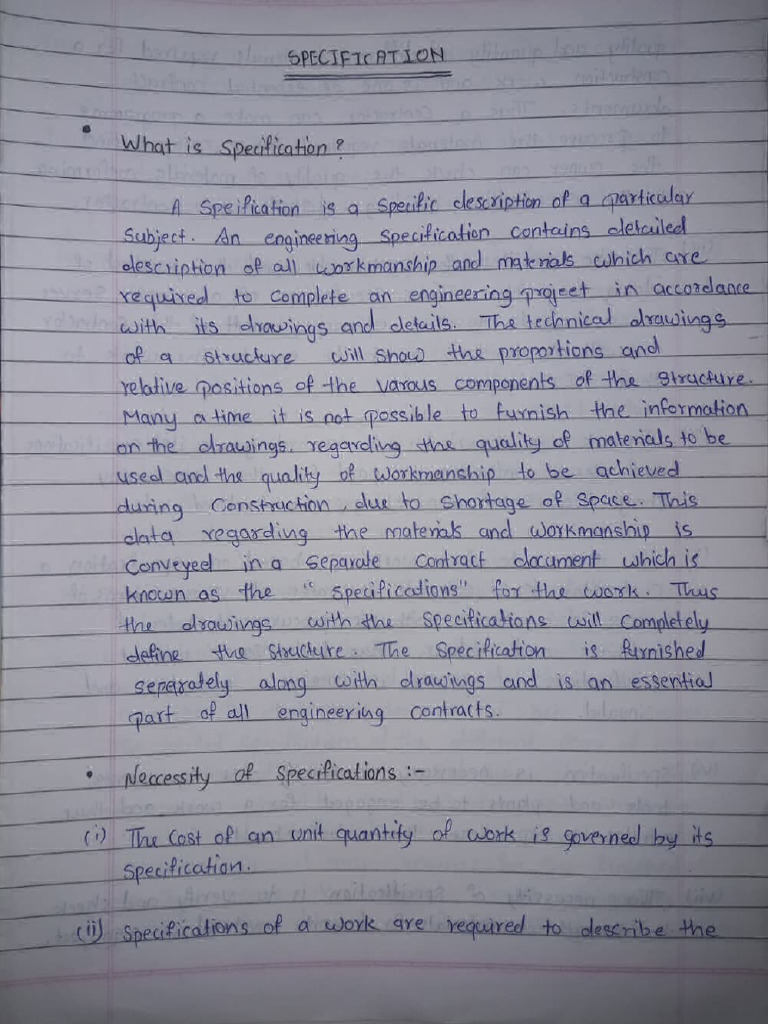 SPECIFICATION
• What is Specification?
A Speification is a specific description of a particular
Subject. An engineering specification contains detailed
description of all workmanship and materials which are
required to complete an engineering project in accordance
with its drawings and details. The technical drawings
of a structure will show the proportions and
relative positions of the varous components of the structure.
Many a time it is not possible to furnish the information
on the drawings, regarding the quality of materials to be
used and the quality of workmanship to be achieved
during Construction, due to shortage of space. This
data regarding the materials and workmanship is
conveyed in a separate contract document which is
known as the "specifications" for the work. Thus
the drawings with the specifications will completely
define the structure. The specification is furnished
seperately along with drawings and is an essential
part of all engineering contracts.
• Neccessity of specifications :-
(i) The cost of an unit quantity of work is governed by its
specification.
(ii) Specifications of a work are required to describe the